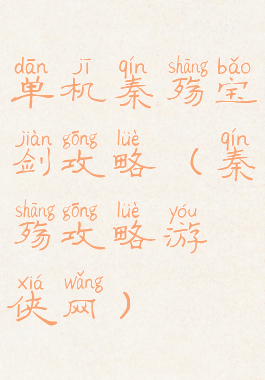 dān jī qín shāng bǎo
单机秦殇宝
jiàn gōng lüè qín
剑攻略（秦
shāng gōng lüè yóu
殇攻略游
xiá wǎng
侠网）